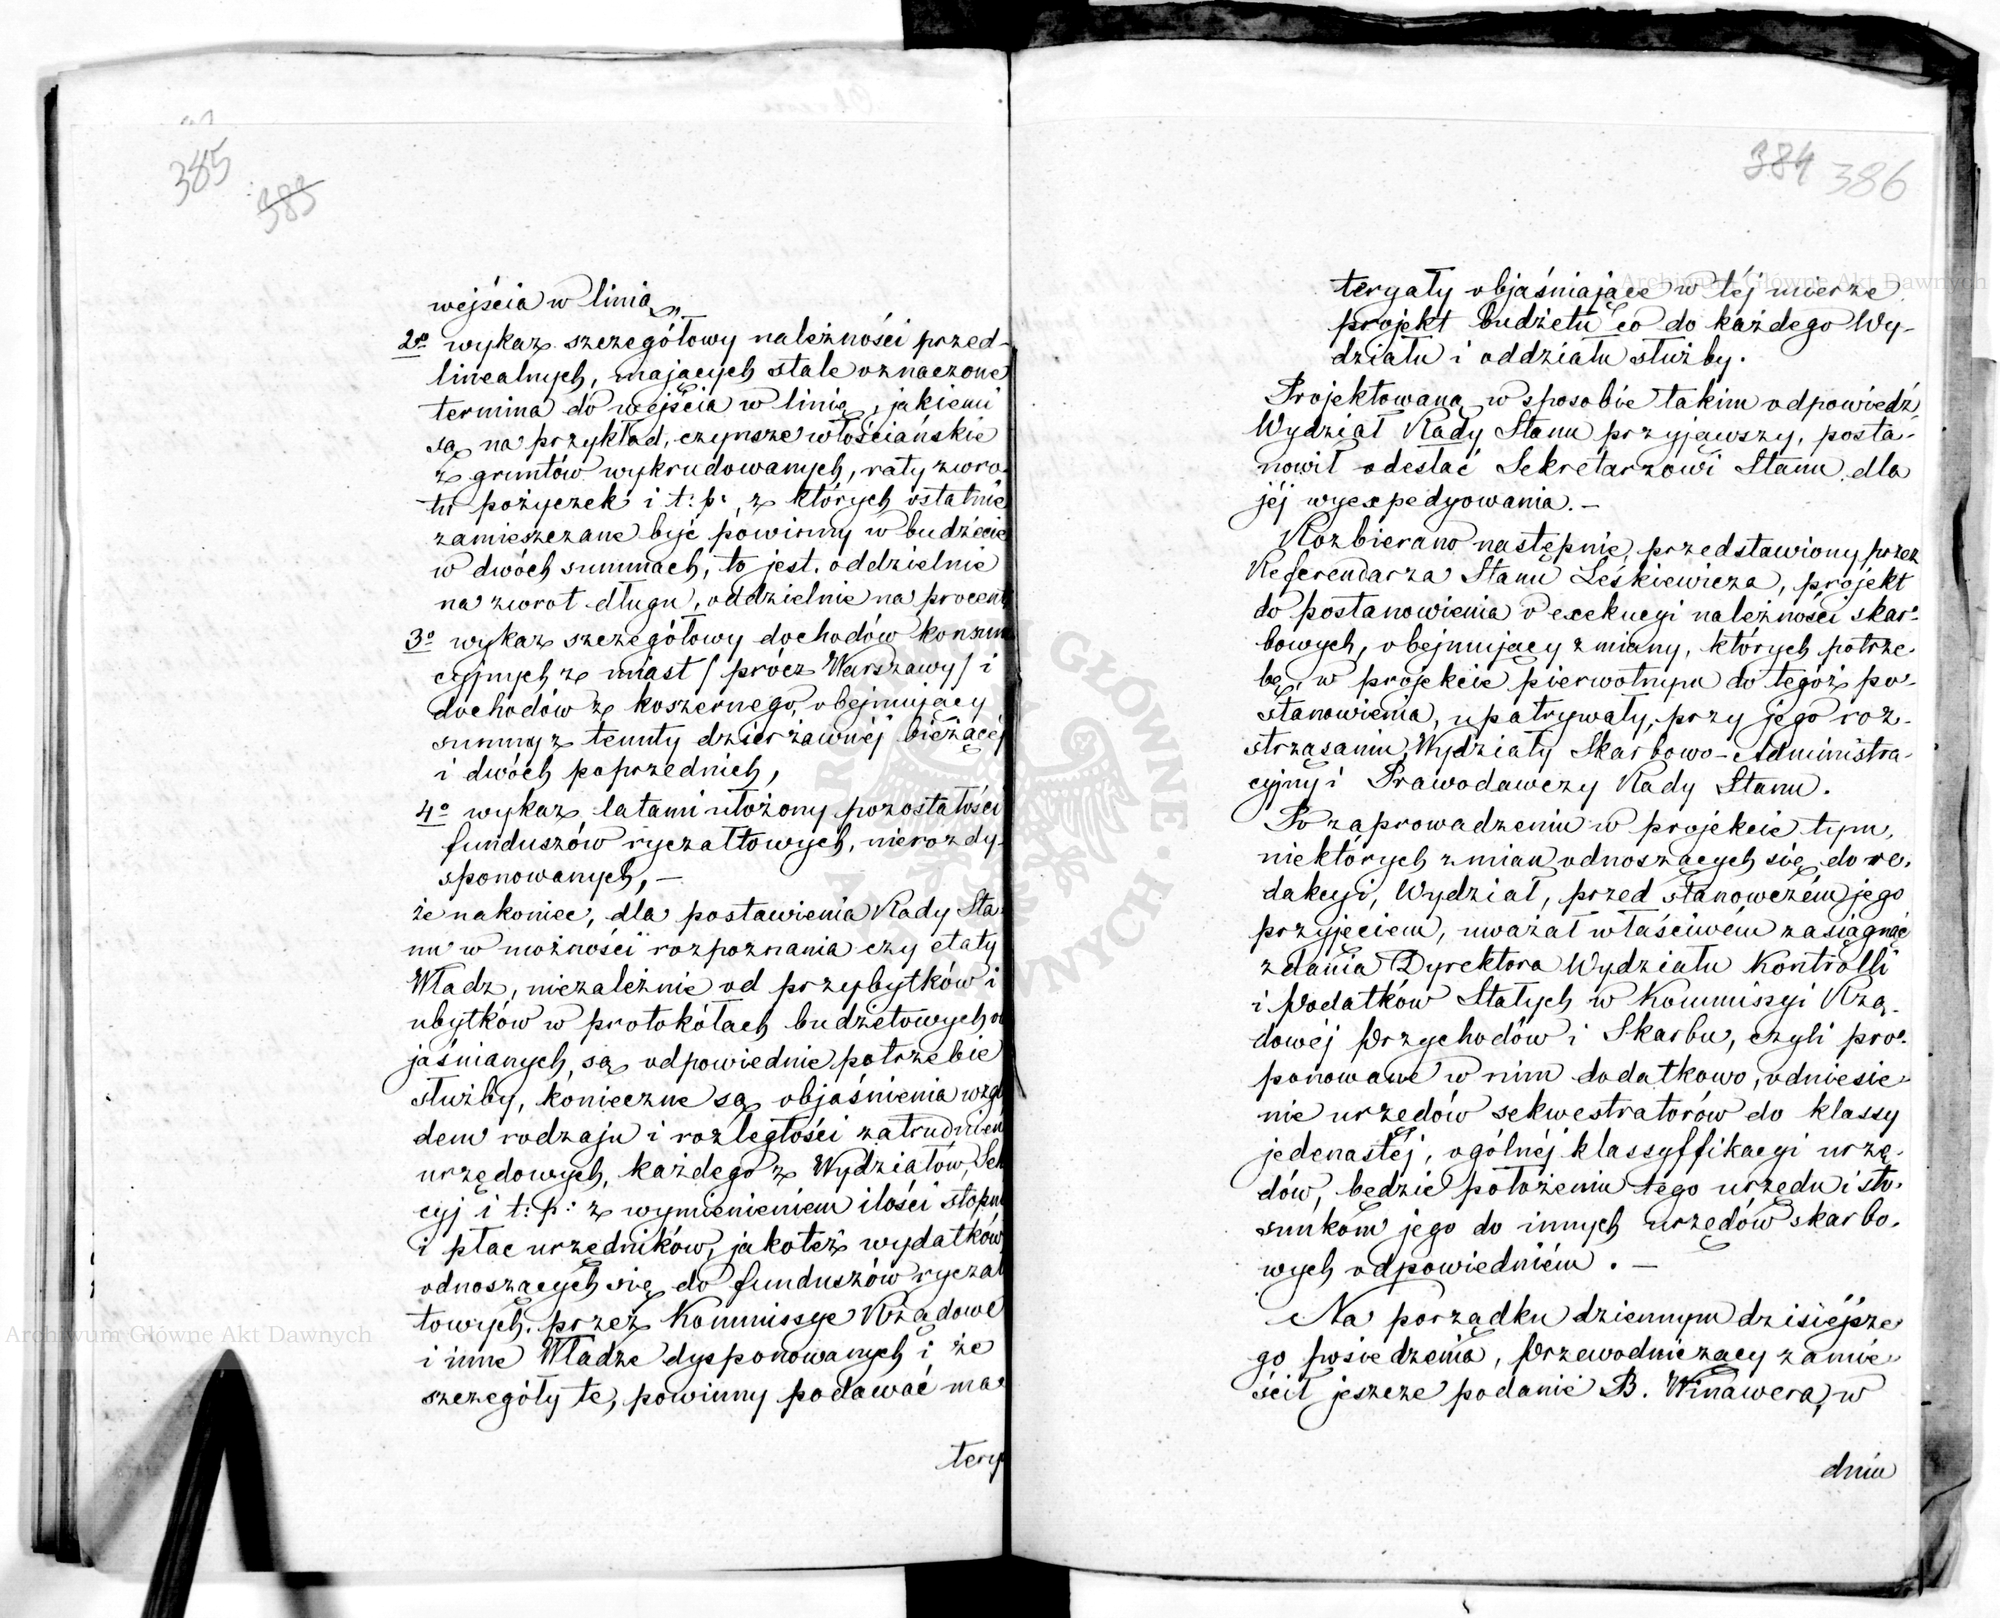 385
383
wejścia w linią,,
2o wykaz szczegółowy należności przed-
linealnych, mających stale oznaczone
termina do wejścia w linią, jakiemi
są na przykład, czynsze włościańskie
z gruntów wykrudowanych, raty zwro-
tu pożyczek i t: p:, z których ostatnie
zamieszczane być powinny w budżecie
w dwóch summach, to jest. oddzielnie
na zwrot długu, oddzielnie na procent
3o wykaz szczegółowy dochodów konsum
cyjnych z miast / prócz Warszawy / i
dochodów z koszernego, obejmujący
summy z tenuty dzierżawnéj bieżącéj
i dwóch poprzednich,
4o wykaz latami ułożony pozostałości
funduszów ryczałtowych, nierozdy-
sponowanych, —
że nakoniec, dla postawienia Rady Sta-
nu w możności rozpoznania czy etaty
Władz, niezależnie od przybytków i
ubytków w protokółach budżetowych o
jaśnianych, są odpowiednie potrzebie
służby, konieczne są objaśnienia wzglę
dem rodzaju i rozległości zatrudnień
urzędowych, każdego z Wydziałów, Sek
cyj i t: p: z wymienieniem ilości stopni
i płac urzędników, jakoteż wydatków
odnoszących się do funduszów ryczał
towych, przez Kommissye Rządowe
i inne Władze dysponowanych i że
szczegóły te, powinny podawać ma
tery
384 386
teryały objaśniające w téj mierze
projekt budżetu co do każdego Wy-
działu i oddziału służby.
Projektowaną w sposobie takim odpowiedź
Wydział Rady Stanu przyjąwszy, posta-
nowił odesłać Sekretarzowi Stanu dla
jéj wyexpedyowania. —
Rozbierano następnie, przedstawiony przez
Referendarza Stanu Leśkiewicza, projekt
do postanowienia o exekucyi należności skar-
bowych, obejmujący zmiany, których potrze-
bę, w projekcie pierwotnym do tegóż po-
stanowienia, upatrywały, przy jego roz-
strząsaniu, Wydziały Skarbowo-Administra-
cyjny i Prawodawczy Rady Stanu.
Po zaprowadzeniu w projekcie tym,
niektórych zmian odnoszących się do re-
dakcyi, Wydział, przed stanowczém jego
przyjęciem, uważał właściwém zasiągnąć
zdania Dyrektora Wydziału Kontrolli
i Podatków Stałych w Kommissyi Rzą-
dowéj Przychodów i Skarbu, czyli pro-
ponowane w nim dodatkowo, odniesie-
nie urzędów sekwestratorów do klassy
jedenastéj, ogólnéj klassyffikacyi urzę-
dów, będzie położeniu tego urzędu i sto-
sunkom jego do innych urzędów skarbo-
wych odpowiedniém. —
Na porządku dziennym dzisiéjsze-
go posiedzenia, Przewodniczący zamie-
ścił jeszcze podanie B. Winawera, w
dniu
Archiwum Główne Akt Dawnych
Archiwum Główne Akt Dawnych